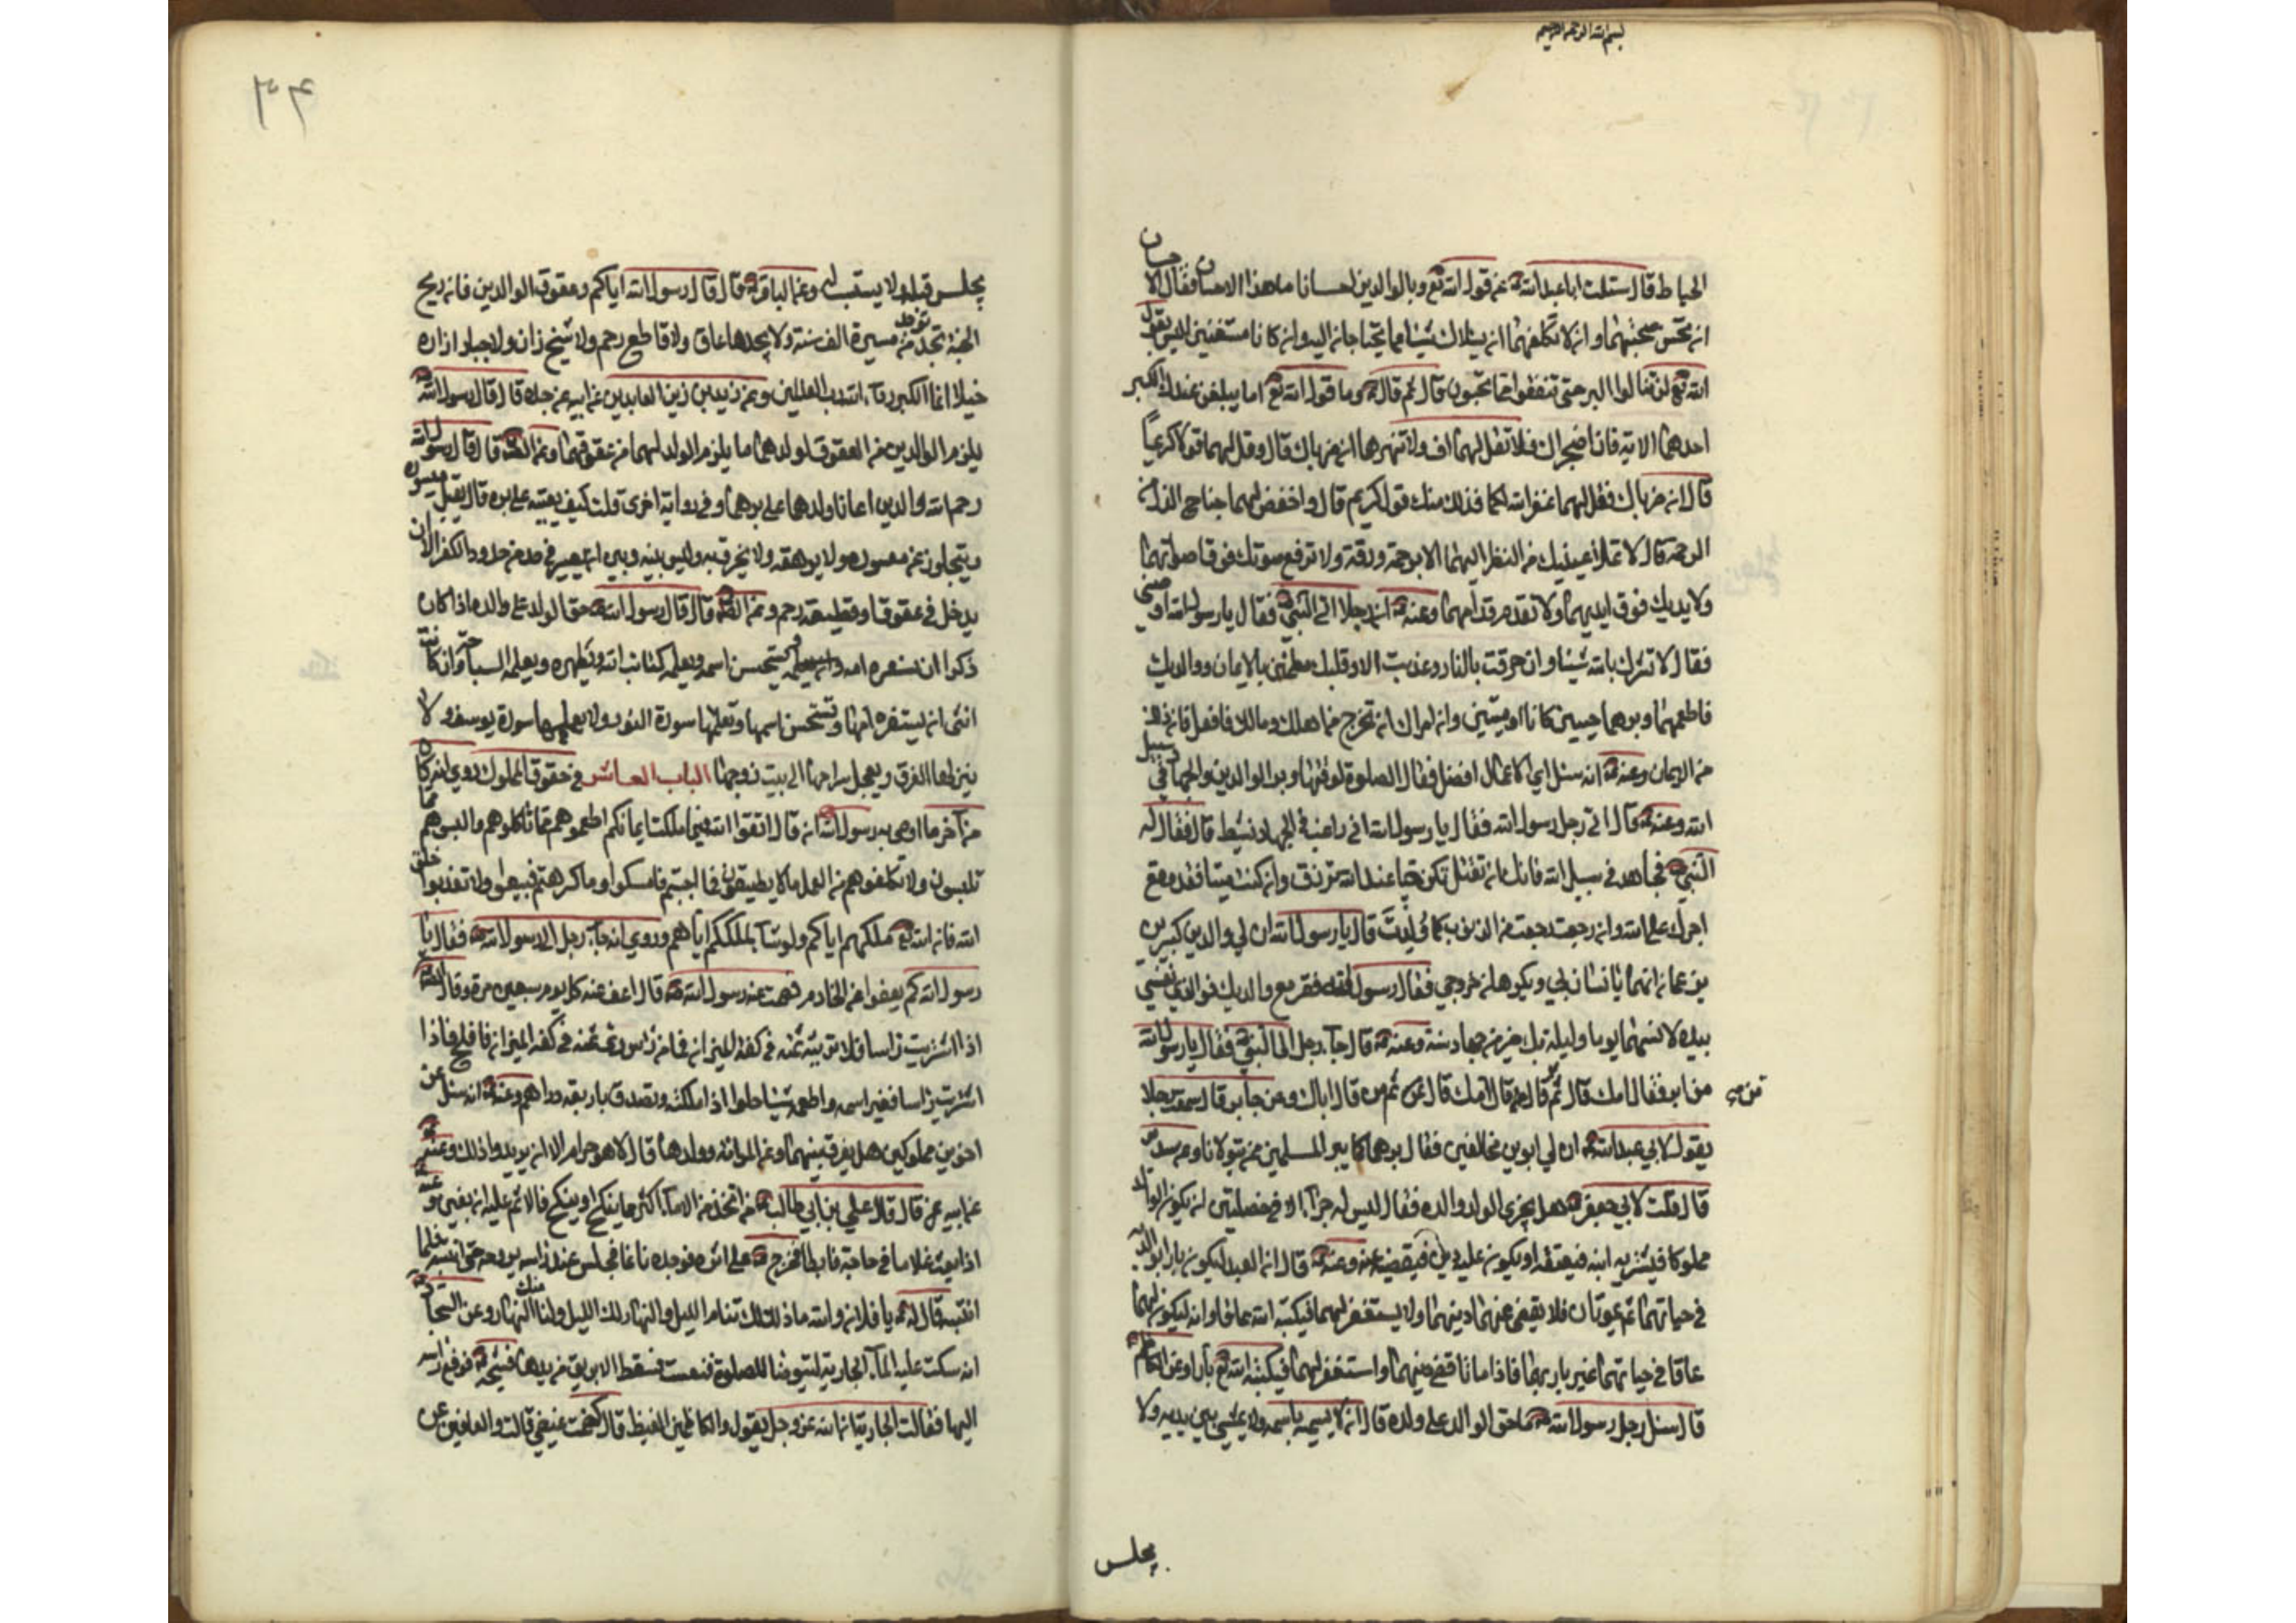 بسم الله الرحمن الرحيم
الحياط قال سئلت ابا عبد الله عن قول الله تع وبالوالدين احسانا ما هذا الاحسان فقال الاحسان
ان تحسن صحبتهما وان لا تكلفهما ان يسئلاك شيئا مما يحتاجان اليه وان كانا مستغنين اليس يقول
الله تع لن تنالوا البر حتى تنفقوا مما تحبون قال ثم قال وما قول الله تع اما يبلغن عندك الكبر
احدهما الاية فان اضجراك فلا تقل لهما اف ولا تنهرهما ان ضرباك قال وقل لهما قولا كريماً
قال ان ضرباك فقل لهما غفر الله لكما فذلك منك قول كريم قال واخفض لهما جناح الذل من
الرحمة قال لا تملأ عينيك من النظر اليهما الا برحمة ورقة ولا ترفع صوتك فوق اصواتهما
ولا يديك فوق ايديهما ولا تقدم قدامهما وعنه ان رجلا اتى النبي فقال يا رسول الله اوصني
فقال لا تشرك بالله شيئا وان حرقت بالنار وعذبت الا وقلبك مطمئن بالايمان ووالديك
فاطعهما وبرهما حيين كانا او ميتين وان امراك ان تخرج من اهلك ومالك فافعل فان ذلك
من الايمان وعنه انه سئل اي الاعمال افضل فقال الصلوة لوقتها وبر الوالدين والجهاد في سبيل
الله وعنه قال اتى رجل رسول الله فقال يا رسول الله اني راغب في الجهاد نشيط قال فقال له
النبي فجاهد في سبيل الله فانك ان تقتل تكن حيا عند الله ترزق وان كنت ميتا فقد وقع
اجرك على الله وان رجعت رجعت من الذنوب كما ولدت قال يا رسول الله ان لي والدين كبيرين
يزعمان انهما يانسان بي ويكرهان خروجي فقال رسول الله فقر مع والديك فوالذي نفسي
بيده لانسهما يوما وليلة بك خير من جهاد سنة وعنه قال جاء رجل الى النبي فقال يا رسول الله
من ابر فقال امك قال ثم من قال امك قال ثم من قال اباك وعن جابر قال سمعت رجلا
ثم من
يقول لابي عبد الله ان لي ابوين مخالفين فقال برهما كما يبر المسلمين من يتولانا وعن سدير
قال قلت لابي جعفر هل يجزي الولد والده فقال ليس له جزاء الا في خصلتين ان يكون الوالد
مملوكا فيشتريه ابنه فيعتقه او يكون عليه دين فيقضيه عنه وعنه قال ان العبد ليكون بارا بوالديه
في حياتهما ثم يموتان فلا يقضي عنهما دينهما ولا يستغفر لهما فيكتبه الله عاقا وانه ليكون لهما
عاقا في حياتهما غير بار بهما فاذا ماتا قضى دينهما واستغفر لهما فيكتبه الله تع بارا وعن الكاظم
قال سئل رجل رسول الله ما حق الوالد على ولده قال ان لا يسميه باسمه ولا يمشي بين يديه ولا
يجلس
٣٦
يجلس قبله ولا يستسب له وعن الباقر قال قال رسول الله اياكم وعقوق الوالدين فان ريح
الجنة توجد من مسيرة الف سنة ولا يجدها عاق ولا قاطع رحم ولا شيخ زان ولا جار ازاره
خيلاء انما الكبرياء لله رب العالمين وعن زيد بن زين العابدين عن ابيه عن جده قال قال رسول الله
يلزم الوالدين من العقوق لولدهما ما يلزم الولد لهما من عقوقهما وعن قال قال رسول الله
رحم الله والدين اعانا ولدهما على برهما وفي رواية اخرى قلت كيف يعينه على بره قال يقبل ميسوره
ويتجاوز عن معسوره ولا يرهقه ولا يخرق به وليس بينه وبين ان يصير في حد من حدود الكفر الا ان
يدخل في عقوق او قطيعة رحم وعن قال قال رسول الله حق الولد على والده اذا كان
ذكرا ان يستفره امه ويستحسن اسمه ويعلمه كتاب الله ويطهره ويعلمه السباحة وان كانت
انثى ان يستفره امها ويستحسن اسمها ويعلمها سورة النور ولا يعلمها سورة يوسف ولا
ينزلها الغرف ويعجل سراحها الى بيت زوجها الباب العاشر في حقوق المملوك روي انه كان
من آخر ما اوصى به رسول الله ان قال اتقوا الله فيما ملكت ايمانكم اطعموهم مما تاكلون والبسوهم مما
تلبسون ولا تكلفوهم من العمل ما لا يطيقون فما احببتم فامسكوا وما كرهتم فبيعوا ولا تعذبوا خلق
الله فان الله تع ملككم اياهم ولو شاء لملكهم اياكم وروي انه جاء رجل الى رسول الله فقال يا
رسول الله كم يعفوا عن الخادم فصمت عنه رسول الله قال اعف عنه كل يوم سبعين مرة وقال
اذا اشتريت راسا فلا تريه ثمنه في كفة الميزان فما من راس رأى ثمنه في كفة الميزان فافلح فاذا
اشتريت راسا فغير اسمه واطعمه شيئا حلوا اذا ملكته وتصدق باربعة دراهم وعنه انه سئل عن
اخوين مملوكين هل يفرق بينهما وعن المراة وولدها قال لا هو حرام الا ان يريدوا ذلك وعنه
عن ابيه قال قال علي بن ابي طالب من اتخذ من الاماء اكثر مما ينكح او ينكح فالاثم عليه ان بغين وعنه
اذا بعث غلاما في حاجة فابطا فخرج على اثره فوجده نائما فجلس عند راسه يروحه حتى انتبه فلما
انتبه قال له يا فلان والله ما ذلك لك تنام الليل والنهار لك الليل ولنا منك النهار وعن السجاد
انه سكبت عليه الماء الجارية ليتوضا للصلوة فنعست فسقط الابريق من يدها فشجه فرفع راسه
اليها فقالت الجارية ان الله عز وجل يقول والكاظمين الغيظ قال كظمت غيظي قالت والعافين عن